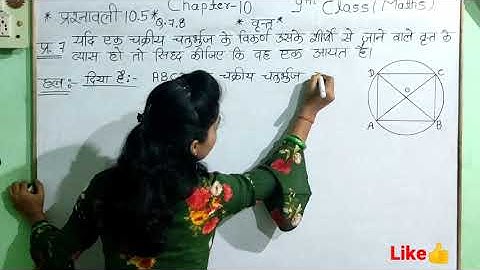 * प्रश्नावली 10.5 * Chapter-10 9th Class (Maths)
Q.7,8 * वृत्त *
प्र. 7 यदि एक चक्रीय चतुर्भुज के विकर्ण उसके शीर्षों से जाने वाले वृत के
व्यास हो तो सिद्ध कीजिए कि वह एक आयत है।
हल:- दिया है:- ABC चक्रीय चतुर्भुज
D C
O
A B
Like👍